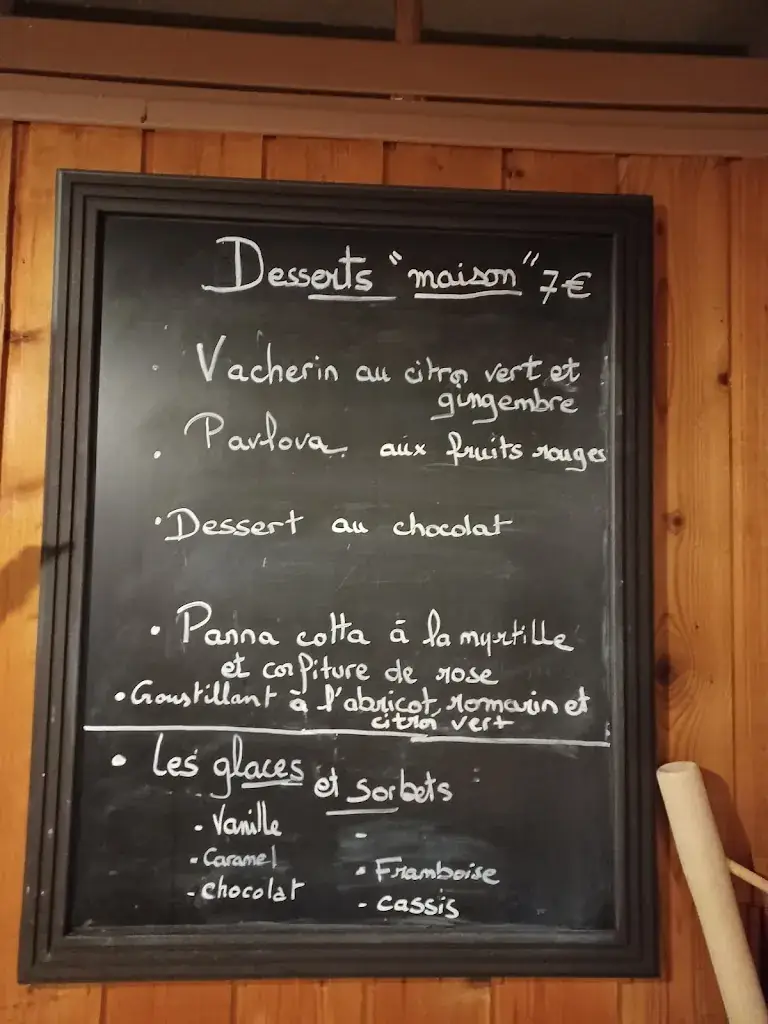 Desserts "maison" 7€
• Vacherin au citron vert et
gingembre
• Pavlova aux fruits rouges
• Dessert au chocolat
• Panna cotta à la myrtille
et confiture de rose
• Croustillant à l'abricot, romarin et
citron vert
• Les glaces et sorbets
- Vanille
-
- Caramel
- Framboise
- chocolat
- cassis